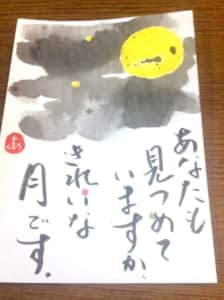 あなたも
見つめて
いますか、
きれいな
月です.
あ